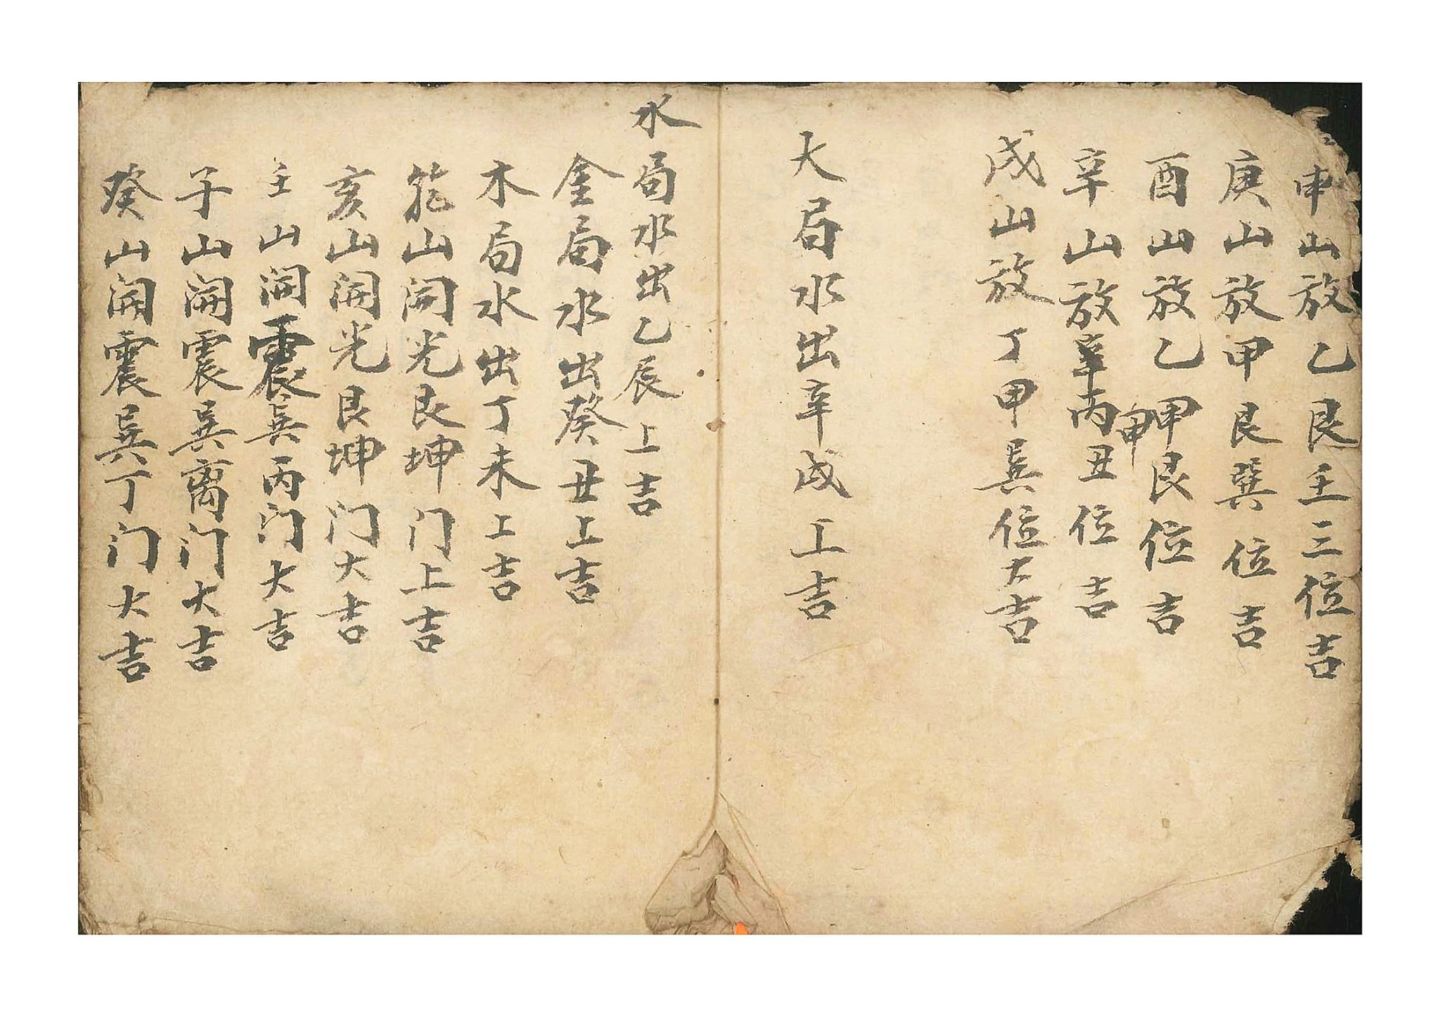 申山放乙艮壬三位吉
庚山放甲艮巽位吉
酉山放乙甲艮位吉
辛山放辛丙丑位吉
申
戌山放丁甲巽位大吉
火局水出辛戌上吉
水局水出乙辰上吉
金局水出癸丑上吉
木局水出丁未上吉
山開光艮坤门上吉
亥山開光艮坤门大吉
壬山開震巽丙门大吉
子山開震巽离门大吉
癸山開震巽丁门大吉